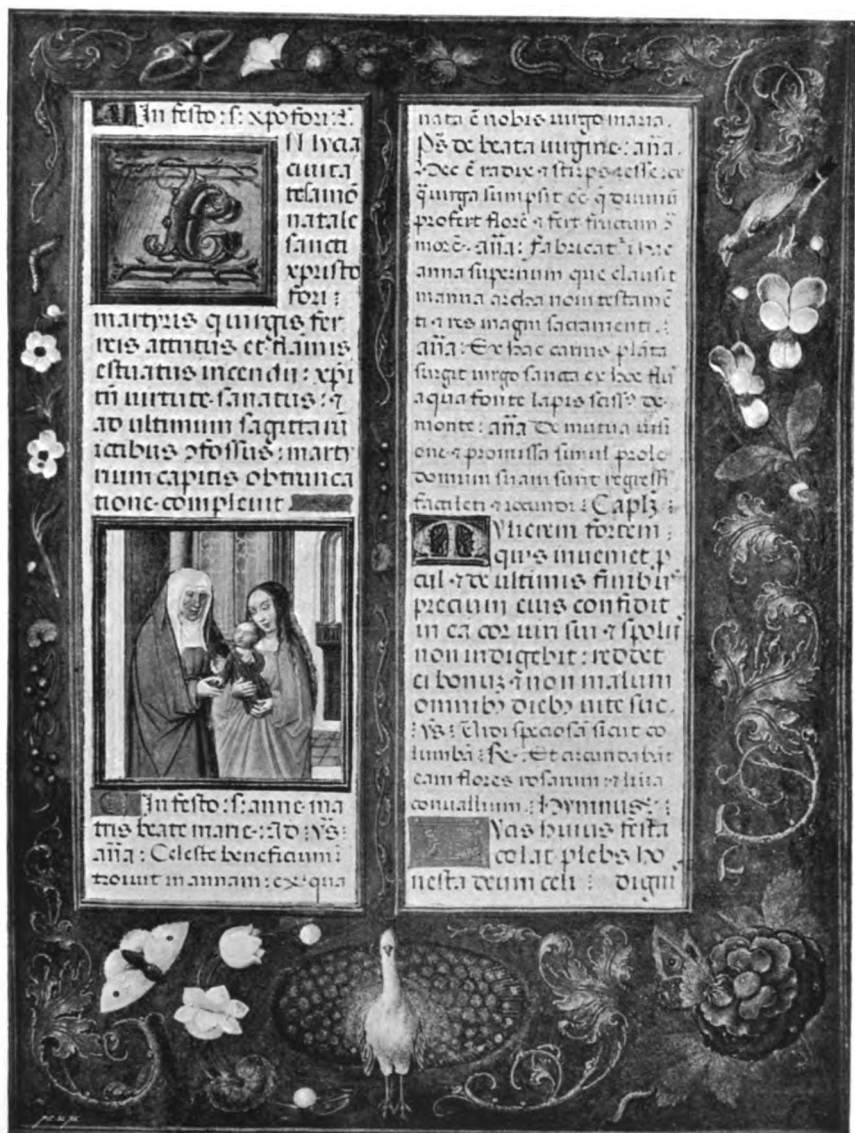 In festo : s : xp̄ofori : 
N lycia
ciuita
te samō
natale
sancti
xpristo
fori :
martyris q uirgis fer
reis attritus et flāmis
estuatus incendii : xpi
tn̄ uirtute sanatus : ⁊
ad ultimum sagittarū
ictibus ꝯfossus : marty
rium capitis obtrunca
tione compleuit
In festo : s : anne ma
tris beate marie : ad : vs̄ :
añ̄a : Celeste beneficium ī
troiuit in annam : ex qua
nata ē nobis uirgo maria.
Ps̄ de beata uirgine : añ̄a.
Hec ē radix ⁊ stirps
q̄ uirga sumpsit q diuinū
profert florē ⁊ fert fructum
morē. añ̄a : fabricat hac
anna supernum que clausit
manna archa noui testamē
ti ⁊ res magni sacramenti :
añ̄a : Ex hac carnis plāta
surgit uirgo sancta ex hoc
aqua fonte lapis sciss9 de
monte : añ̄a De mutua uisi
one ⁊ promissa simul prole
domum suam sunt regressi
⁊ iocundi : Caplȝ :
Mulierem fortem :
quis inueniet p
cul ⁊ de ultimis finibus
precium eius confidit
in ea cor uiri sui ⁊ spoliis
non indigebit : reddet
ei bonuȝ ⁊ non malum
omnibȝ diebȝ uite sue.
: vs̄ : Uidi speciosā sicut co
lumbā : R̄. Et circundabāt
eam flores rosarum ⁊ lilia
conuallium. : Hymnus :
ucis huius festa
colat plebs ho
nesta deum celi : digni